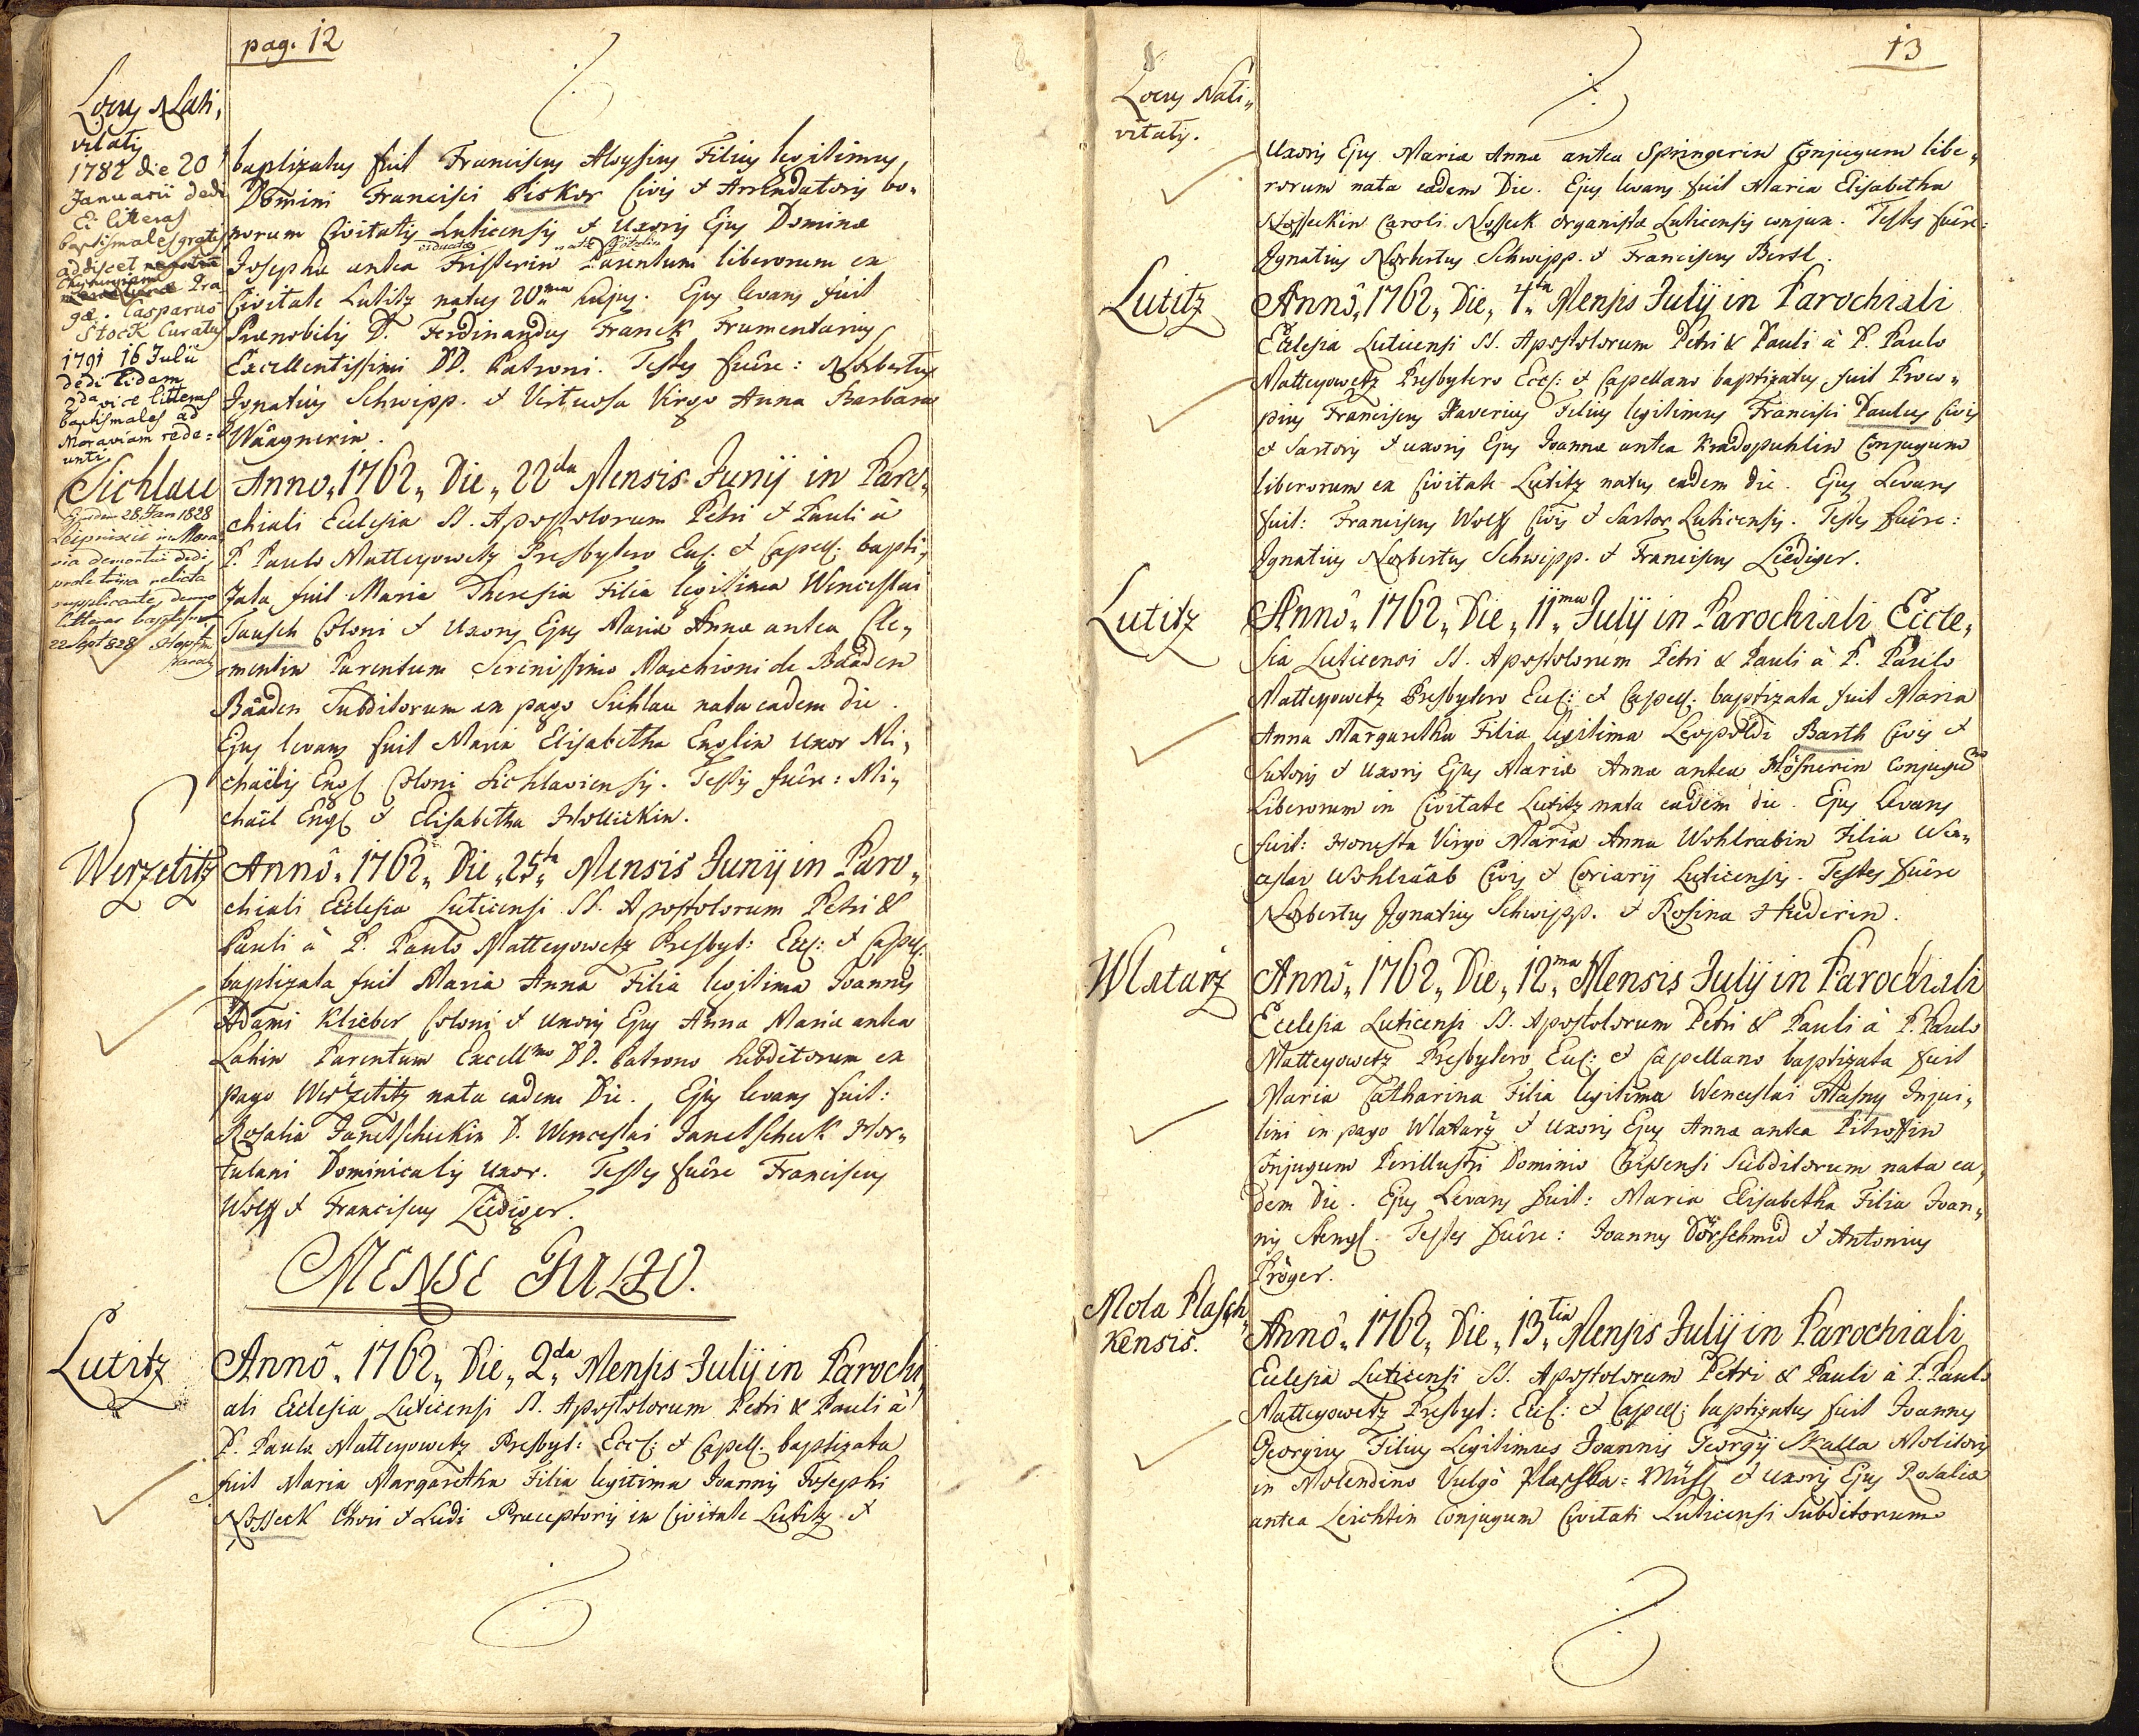 pag. 12
Locus Nati,
vitatis
1782 die 20
Januarii dedi
Ei litteras
baptismales gratis
addiscet
Chyrurgiam Pra
gæ. Casparus
Stock Curatus
1791 16 Julii
dedi Eidam
2da vice litteras
baptismales ad
Moraviam rede=
unti
baptizatus fuit Franciscus Aloysius Filius legitimus
Domini Francisci Piskor Civis & Arrendatoris bo„
norum Civitatis Luticensis & Uxoris Ejus Dominæ
Josepha antea Fristerin Parentum liberorum ex
Civitate Lutitz natus 20ma hujus. Ejus levans fuit
Prænobilis D. Ferdinandus Franck Frumentarius
Excellentissimi DD. Patroni. Testes fuêre: Norbertus
Ignatius Schwipp. & Virtuosa Virgo Anna Barbara
Waagnerin.
Sichlau
28 Jan 1828
in Mora
via demortui dedi
prole relicta
supplicante, denuo
litteras baptism.
22 Sept 828
Anno„ 1762„ Die„ 22da Mensis Junij in Paro„
chiali Ecclesia SS. Apostolorum Petri & Pauli à
P. Paulo Matteyowetz Presbytero Eccl. & Capell: bapti„
zata fuit Maria Theresia Filia legitima Wenceslai
Tausch Coloni & Uxoris Ejus Maria Anna antea Cle„
mentin Parentum Serenissimo Marchioni de Baaden
Baaden Subditorum ex pago Sichlau nata eadem die.
Ejus levans fuit Maria Elisabetha Englin Uxor Mi„
chaëlis Engl Coloni Sichlaviensis. Testes fuêre: Mi„
chaël Engl & Elisabetha Hollickin.
Werzetitz
Annô„ 1762„ Die„ 25ta Mensis Junij in Paro„
chiali Ecclesia Luticensi SS. Apostolorum Petri &
Pauli à P. Paulo Matteyowetz Presbyt: Eccl: & Capell.
baptizata fuit Maria Anna Filia legitima Joannis
Adami Klieber Coloni & Uxoris Ejus Anna Maria antea
Lahin Parentum Excellmo DD. Patrono Subditorum ex
pago Werzetitz nata eadem Die. Ejus levans fuit:
Rosalia Janetscheckin D. Wenceslai Janetscheck Hor„
tulani Dominicalis Uxor. Testes fuêre Franciscus
Wolff & Franciscus Liediger.
MENSE JULIO.
Lutitz
Annô„ 1762„ Die„ 2da Mensis Julij in Parochi„
ali Ecclesia Luticensi SS. Apostolorum Petri & Pauli à
P. Paulo Matteyowetz Presbyt: Eccl: & Capell. baptizata
fuit Maria Margaretha Filia legitima Joannis Josephi
Nosseck Chori & Ludi Præceptoris in Civitate Lutitz &
13
Locus Nati„
vitatis.
Uxoris Ejus Maria Anna antea Springerin Conjugum libe„
rorum nata eadem Die. Ejus levans fuit Maria Elisabetha
Nosseckin Caroli Nosseck Organista Luticensis conjux. Testes fuêre:
Ignatius Norbertus Schwipp. & Franciscus Berst.
Lutitz
Annô„ 1762„ Die„ 4ta Mensis Julij in Parochiali
Ecclesia Luticensi SS. Apostolorum Petri & Pauli à P. Paulo
Matteyowetz Presbytero Eccl: & Capellano baptizatus fuit Proco„
pius Franciscus Xaverius Filius legitimus Francisci Paulus Civis
& Sartoris & uxoris Ejus Joanna antea Kradopuhlin Conjugum
liberorum ex Civitate Lutitz natus eadem die. Ejus Levans
fuit: Franciscus Wolff Civis & Sartor Luticensis. Testes fuêre:
Ignatius Norbertus Schwipp. & Franciscus Liediger.
Lutitz
Annô„ 1762„ Die„ 11ma Julij in Parochiali Eccle„
sia Luticensi SS. Apostolorum Petri & Pauli à P. Paulo
Matteyowetz Presbytero Eccl: & Capell. baptizata fuit Maria
Anna Margaretha Filia legitima Leopoldi Barth Civis &
Sutoris & Uxoris Ejus Maria Anna antea Hösnerin Conjugum
Liberorum in Civitate Lutitz nata eadem die. Ejus levans
fuit: Honesta Virgo Maria Anna Wohlrabin Filia Wen„
ceslai Wohlraab Civis & Coriarij Luticensis. Testes fuêre
Norbertus Ignatius Schwipp. & Rosina Huderin.
Wlatarz
Annô„ 1762„ Die„ 12ma Mensis Julij in Parochiali
Ecclesia Luticensi SS. Apostolorum Petri & Pauli à P. Paulo
Matteyowetz Presbytero Eccl: & Capellano baptizata fuit
Maria Catharina Filia legitima Wenceslai Masny Inqui„
lini in pago Wlatarz & Uxoris Ejus Anna antea Pitroffin
Conjugum Perillustri Dominio Chisensi Subditorum nata ea„
dem Die. Ejus Levans fuit: Maria Elisabetha Filia Joan„
nis Stengl. Testes fuêre: Joannes Dörschmid & Antonius
Pröger.
Mola Plasch„
kensis.
Annô„ 1762„ Die„ 13tia Mensis Julij in Parochiali
Ecclesia Luticensi SS. Apostolorum Petri & Pauli à P. Paulo
Matteyowetz Presbyt: Eccl: & Capell: baptizatus fuit Joannes
Georgius Filius Legitimus Joannis Georgij Skalla Molitoris
in Molendino Vulgò Plaschka=Mühl & uxoris Ejus Rosalia
antea Leichtin Conjugum Civitati Luticensi Subditorum